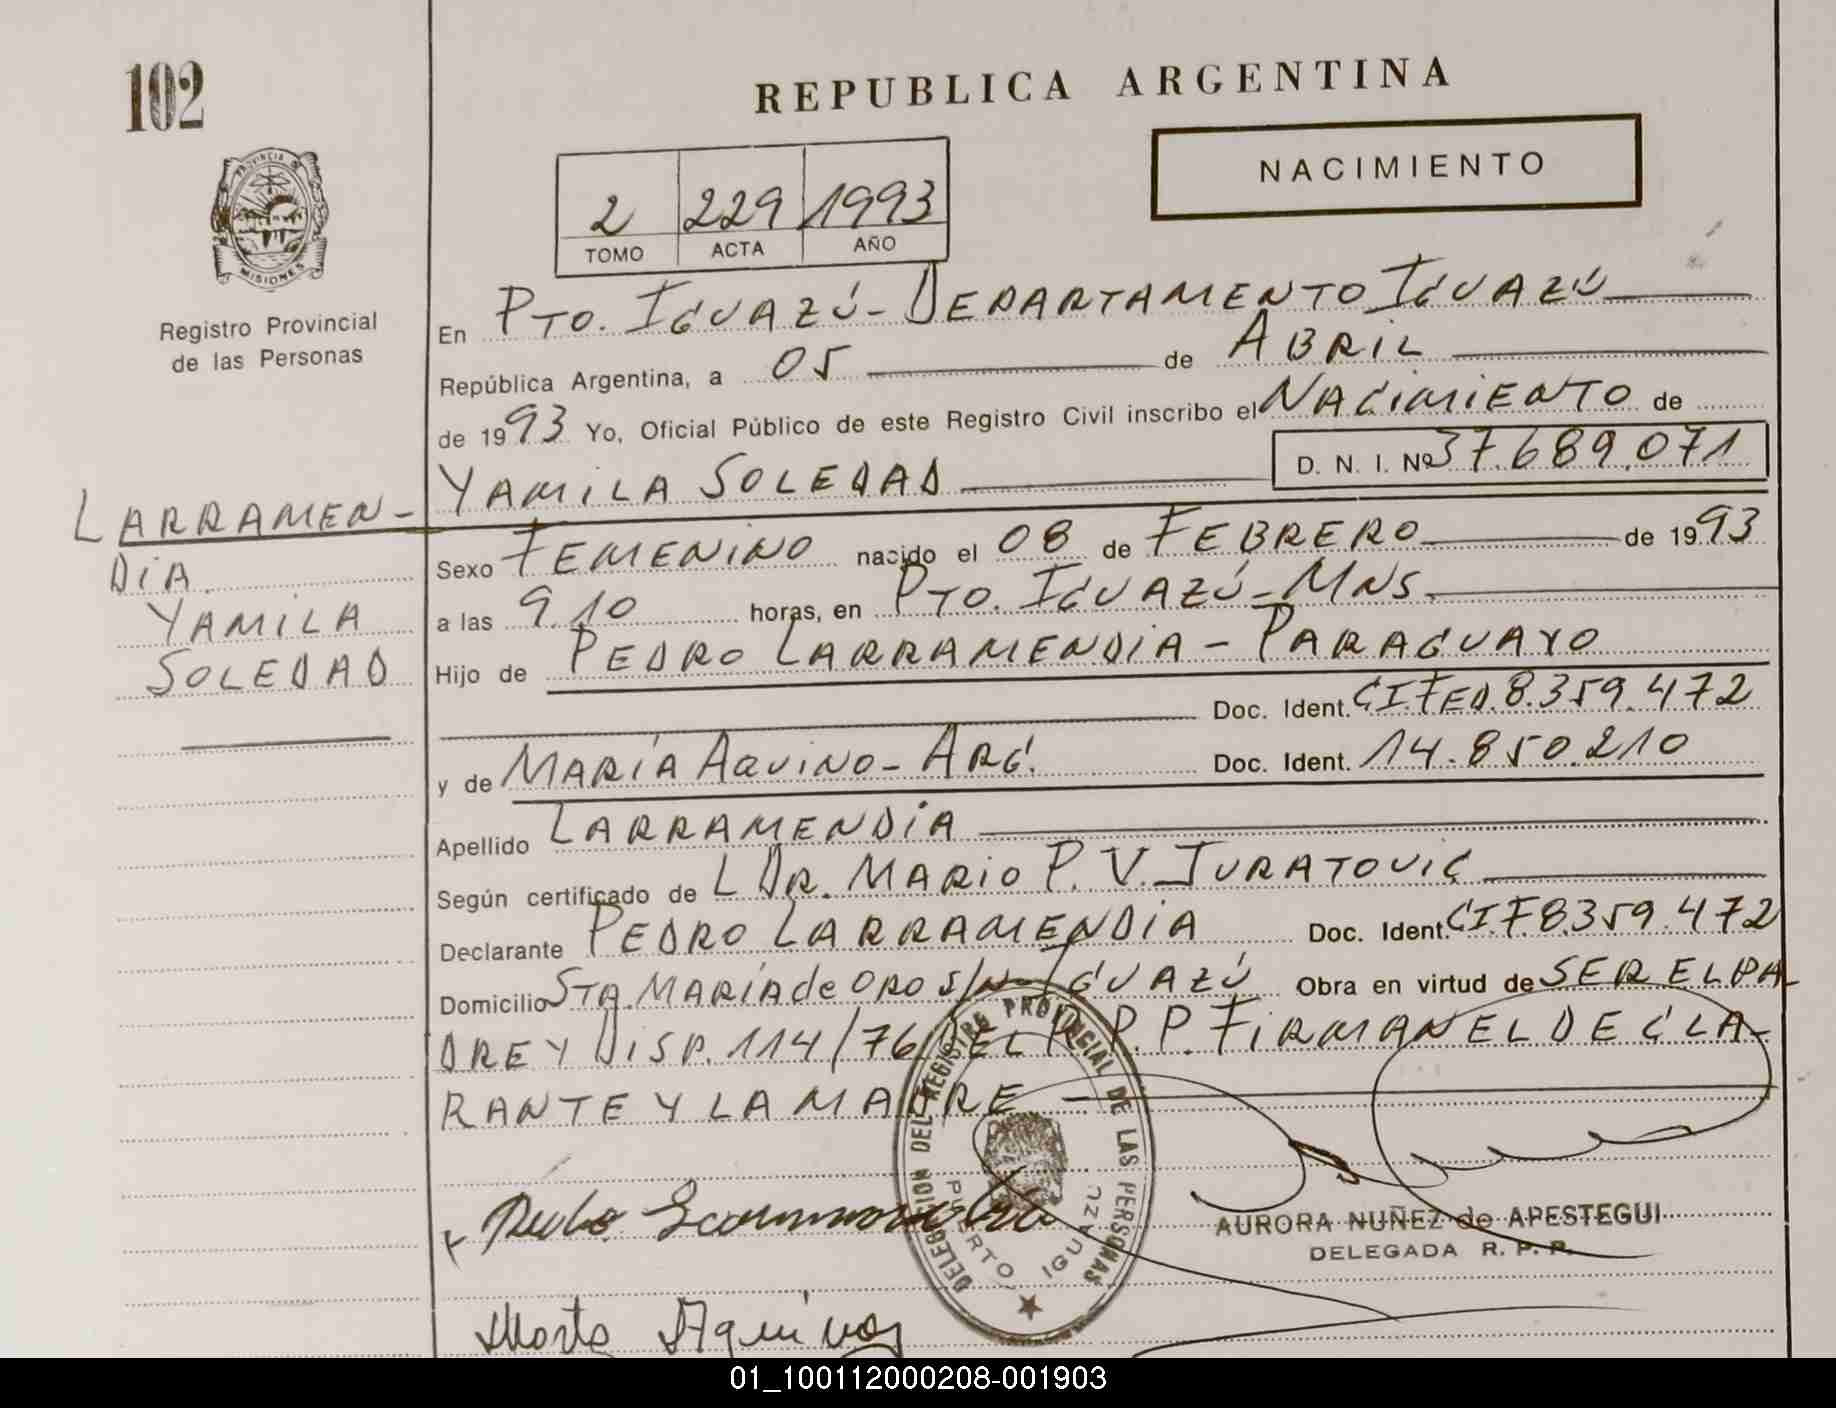 102
REPUBLICA ARGENTINA
NACIMIENTO
2 229 1993
TOMO ACTA AÑO
PROVINCIA DE MISIONES
Registro Provincial
de las Personas
En PTO. IGUAZÚ - DEPARTAMENTO IGUAZÚ
República Argentina, a 05 de ABRIL
de 1993 Yo, Oficial Público de este Registro Civil inscribo el NACIMIENTO de
D. N. I. Nº 37.689.071
YAMILA SOLEDAD
LARRAMEN-
DIA
YAMILA
SOLEDAD
Sexo FEMENINO nacido el 08 de FEBRERO de 1993
a las 9.10 horas, en PTO. IGUAZÚ - MNS.
Hijo de PEDRO LARRAMENDIA - PARAGUAYO
Doc. Ident. CI.FED.8.359.472
y de MARÍA AQUINO - ARG. Doc. Ident. 14.850.210
Apellido LARRAMENDIA
Según certificado de L DR. MARIO P. V. JURATOVIC
Declarante PEDRO LARRAMENDIA Doc. Ident. CI.F8.359.472
Domicilio STA. MARÍA de ORO S/N - IGUAZÚ Obra en virtud de SER EL PA-
DRE Y DISP. 114/76 DEL R.P.P. FIRMAN EL DECLA-
RANTE Y LA MADRE -
DELEGACION DEL REGISTRO PROVINCIAL DE LAS PERSONAS
PUERTO IGUAZU
AURORA NUÑEZ de APESTEGUI
DELEGADA R. P. P.
01_100112000208-001903